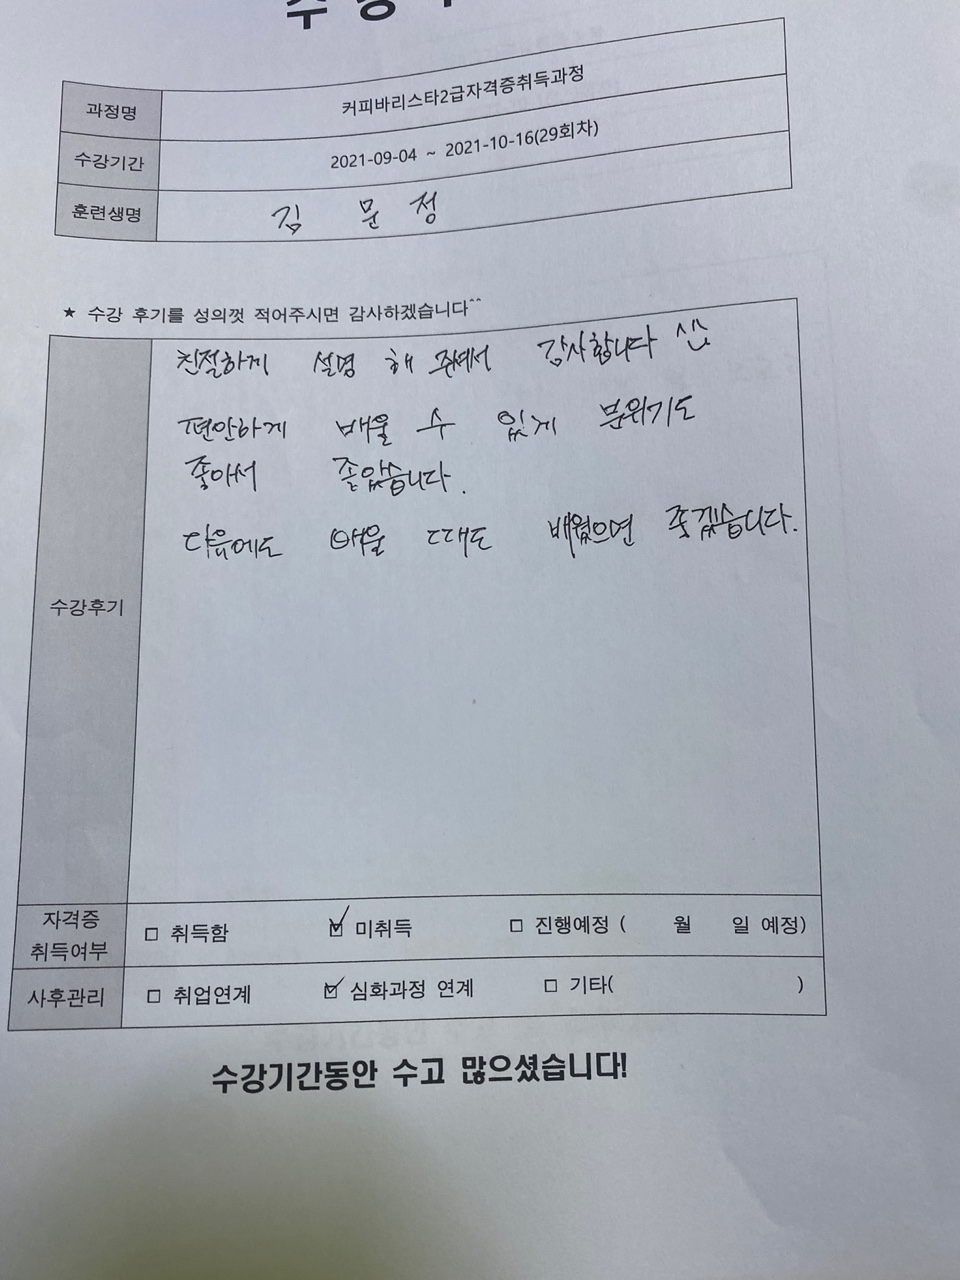 수강
과정명 커피바리스타2급자격증취득과정
수강기간 2021-09-04 ~ 2021-10-16(29회차)
훈련생명 김 문 정
★ 수강 후기를 성의껏 적어주시면 감사하겠습니다^^
친절하게 설명 해 주셔서 감사합니다 ^^
편안하게 배울 수 있게 분위기도
좋아서 좋았습니다.
다음에도 배울 때도 배웠으면 좋겠습니다.
수강후기
자격증
취득여부 □ 취득함 ☑ 미취득 □ 진행예정 ( 월 일 예정)
사후관리 □ 취업연계 ☑ 심화과정 연계 □ 기타( )
수강기간동안 수고 많으셨습니다!